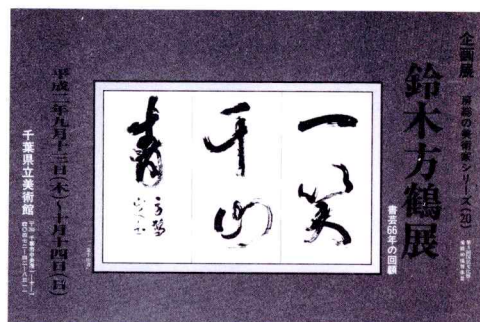 企画展 房総の美術家シリーズ(20)
鈴木方鶴展
書芸66年の回顧
一笑
千山
青
平成二年九月十三日(木)〜十月十四日(日)
千葉県立美術館